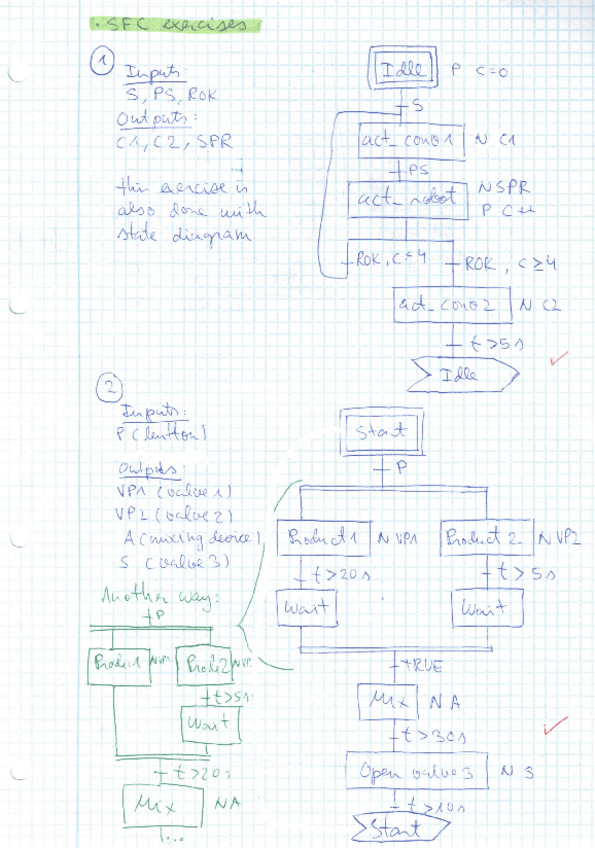 . SFC exercises
1
Inputs:
S, PS, ROK
Outputs:
C1, C2, SPR
this exercise is
also done with
state diagram
Idle P C=0
S
act_cono1 N C1
PS
act_robot N SPR
P C++
ROK, C<4 ROK, C≥4
act_cono2 N C2
t>5s
Idle
2
Inputs:
P (button)
Outputs:
VP1 (valve 1)
VP2 (valve 2)
A (mixing device)
S (valve 3)
Start
P
Product 1 N VP1 Product 2 N VP2
t>20s t>5s
Wait Wait
TRUE
Mix N A
t>30s
Open valve 3 N S
t>10s
Start
Another way:
P
Prod. 1 N VP Prod. 2 N VP
t>5s
Wait
t>20s
Mix N A